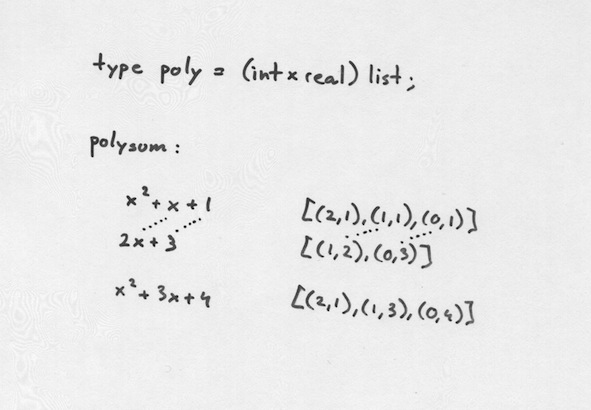 type poly = (int x real) list;
polysum:
x² + x + 1 [(2,1),(1,1),(0,1)]
2x + 3 [(1,2),(0,3)]
x² + 3x + 4 [(2,1),(1,3),(0,4)]